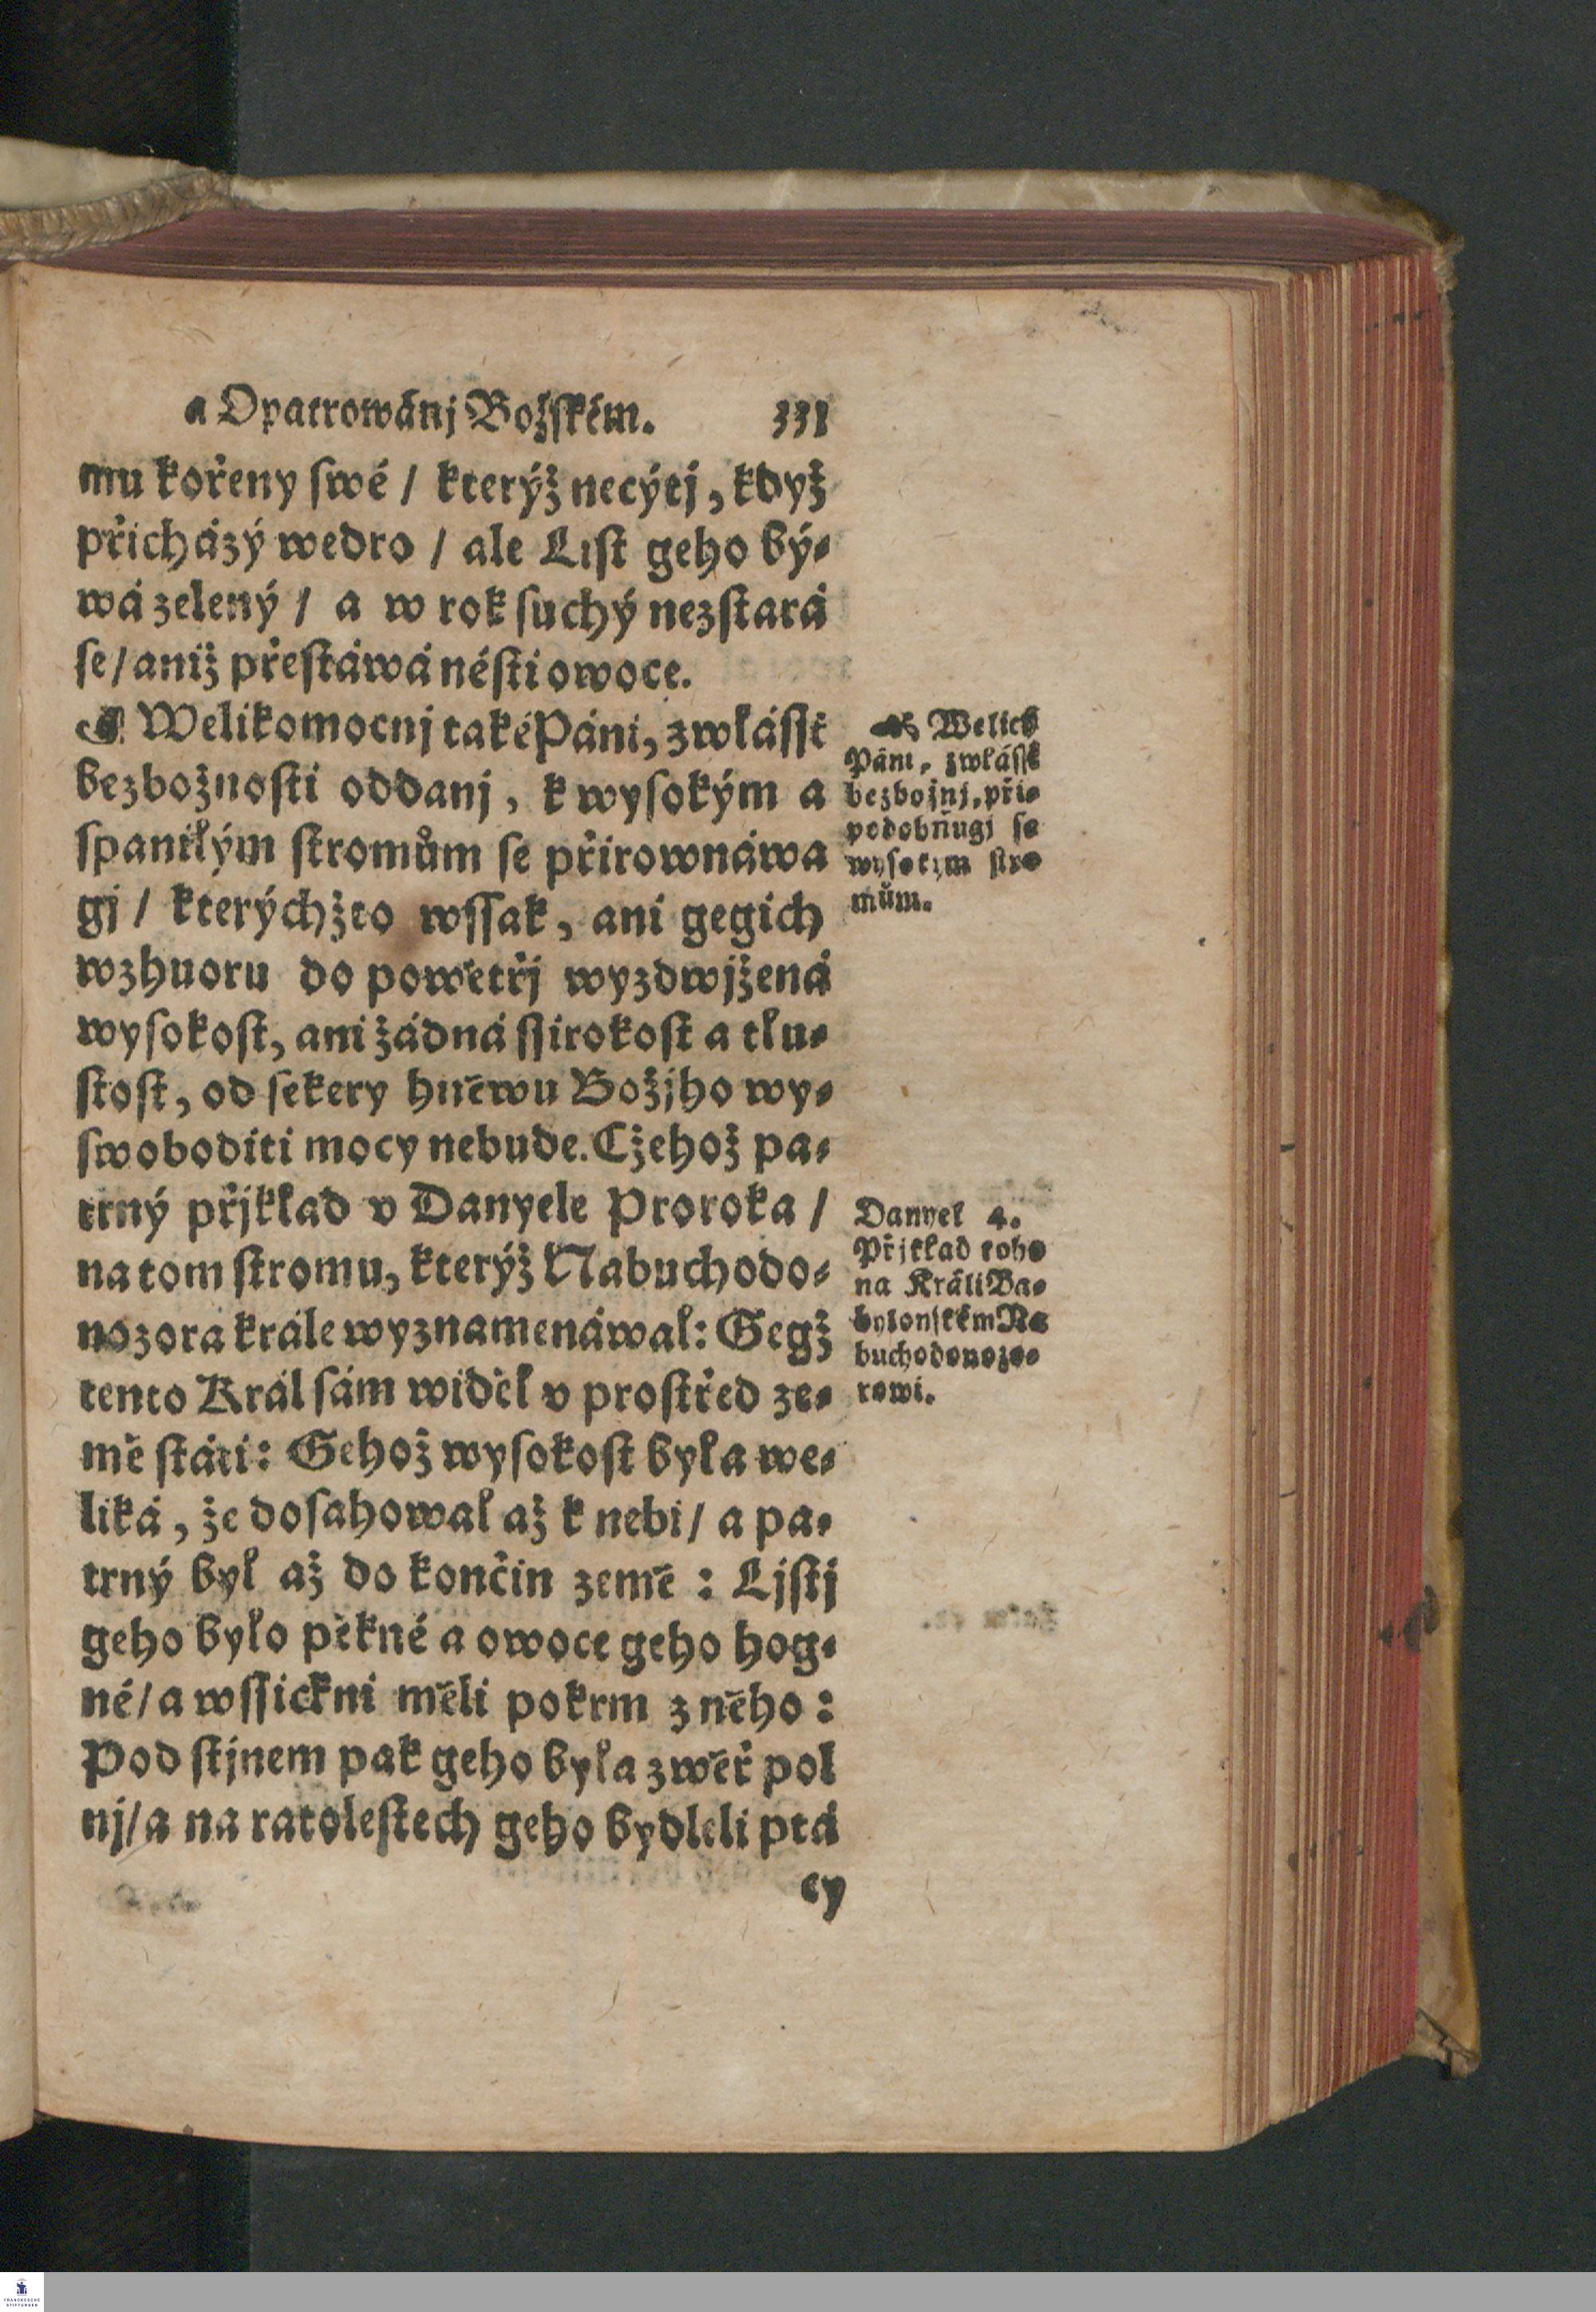 a Opatrowánj Božském. 331
mu kořeny swé / kterýž necýtj, když
přicházý wedro / ale List geho bý-
wá zelený / a w rok suchý nezstará
se / aniž přestáwá nésti owoce.
¶ Welikomocnj také Páni, zwlásstě
bezbožnosti oddanj, k wysokým a
spanilým stromům se přirownáwa
gj / kterýchžto wssak, ani gegich
wzhuoru do powětřj wyzdwjžená
wysokost, ani žádná ssirokost a tlu-
stost, od sekery hněwu Božjho wy-
swoboditi mocy nebude. Cžehož pa-
trný přjklad v Danyele Proroka /
na tom stromu, kterýž Nabuchodo-
nozora krále wyznamenáwal: Gegž
tento Král sám widěl v prostřed ze-
mě státi: Gehož wysokost byla we-
liká, že dosahowal až k nebi / a pa-
trný byl až do končin země : Ljstj
geho bylo pěkné a owoce geho hog-
né / a wssickni měli pokrm z něho :
Pod stjnem pak geho byla zwěř pol
nj / a na ratolestech geho bydleli ptá
cy
Welicý
Páni, zwlásstě
bezbožnj, při-
podobňugj se
wysokým stro
mům.
Danyel 4.
Přjklad toho
na Králi Ba-
bylonském Na
buchodonozo-
rowi.
FRANCKESCHE
STIFTUNGEN